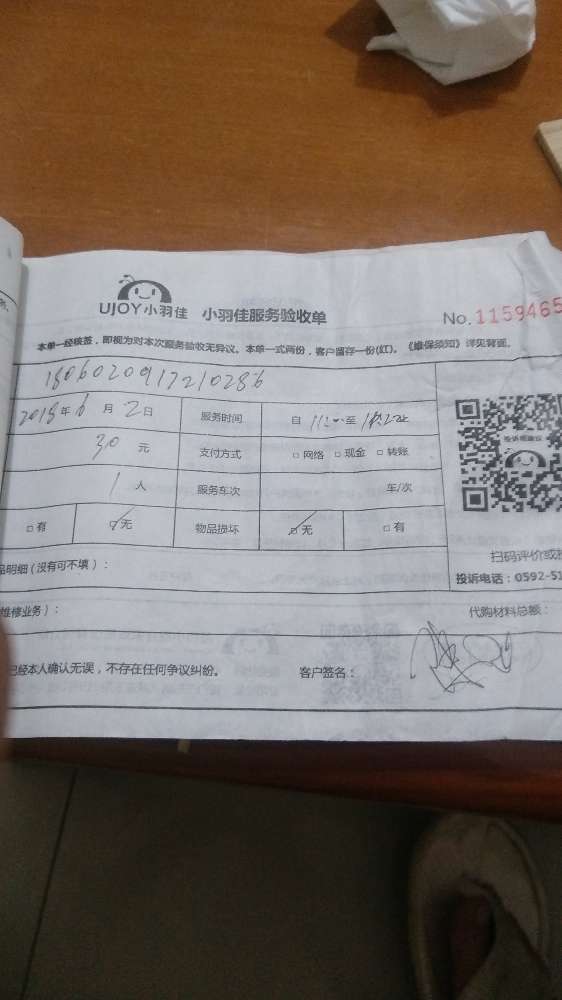 UJOY小羽佳 小羽佳服务验收单 No.1159465
本单一经核签，即视为对本次服务验收无异议。本单一式两份，客户留存一份(红)。《维保须知》详见背面。
1806020917210286
2018年6月2日 服务时间 自 至
30元 支付方式 □网络 □现金 □转账
1人 服务车次 车/次
□有 □无 物品损坏 □无 □有
投诉或建议
扫码评价或投
品明细(没有可不填)： 投诉电话：0592-51
维修业务)： 代购材料总额：
已经本人确认无误，不存在任何争议纠纷。 客户签名：